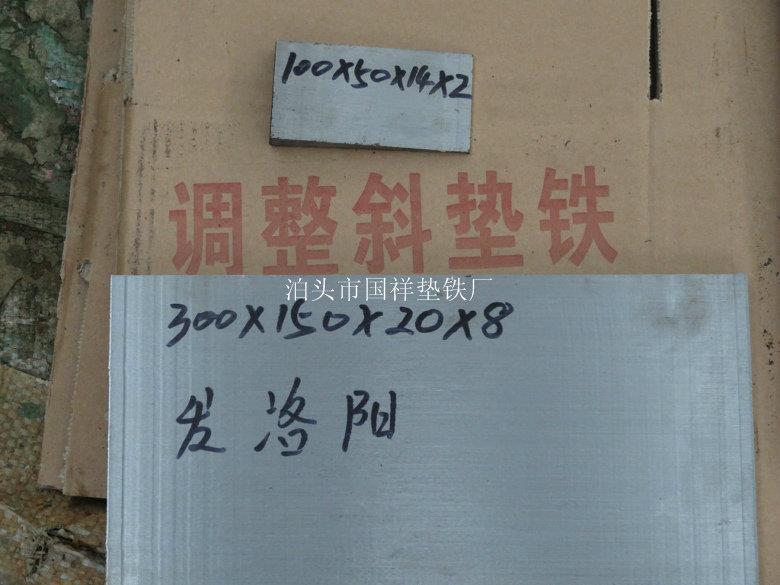 100X50X14X2
调整斜垫铁
泊头市国祥垫铁厂
300X150X20X8
发洛阳